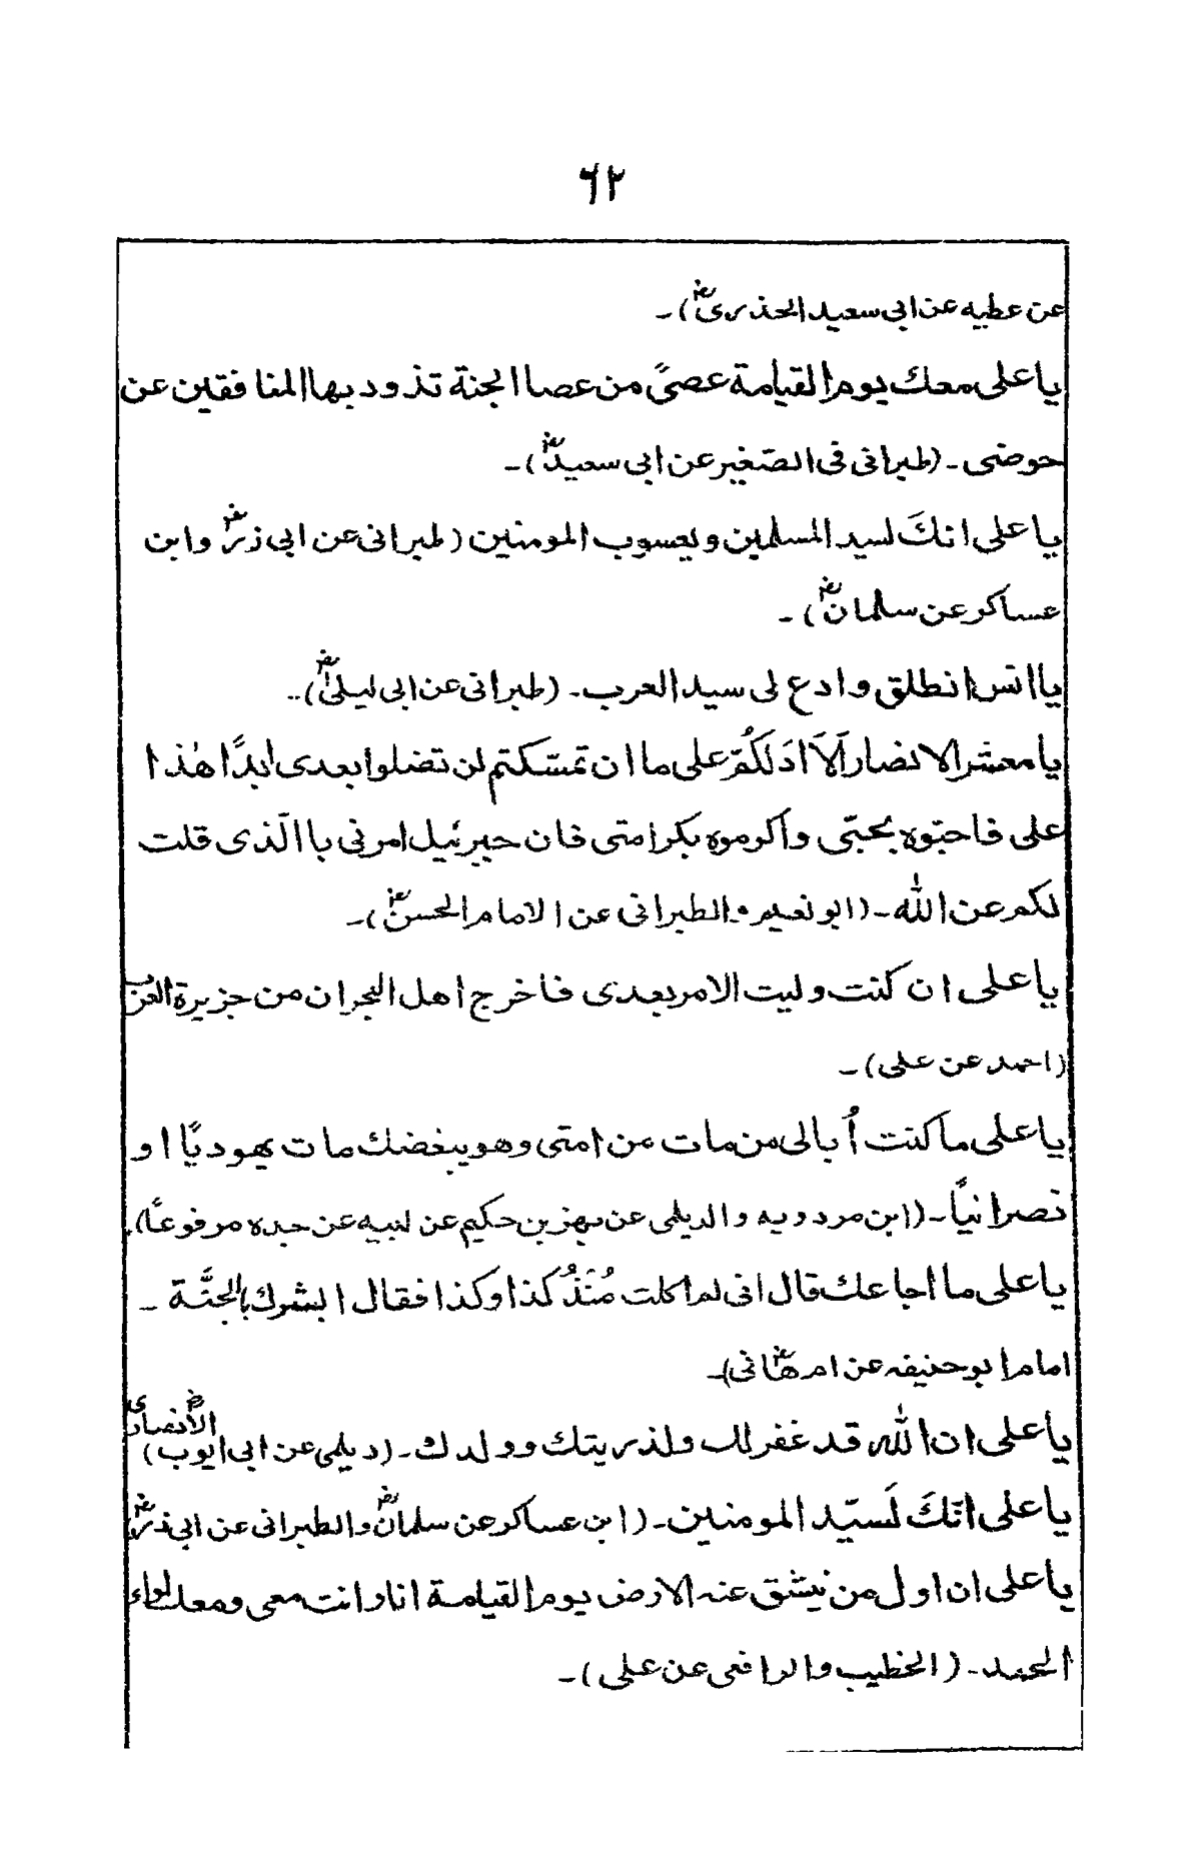 ۶۲
عن عطيه عن ابی سعید الحذریؓ)۔
یا علی معك یوم القیامة عصیً من عصا الجنة تذود بها المنافقین عن
حوضی۔ (طبرانی فی الصّغیر عن ابی سعیدؓ)۔
یا علی انكَ لسید المسلمین ویعسوب المومنین (طبرانی عن ابی ذرؓ وابن
عساکر عن سلمانؓ)۔
یا انس انطلق وادع لی سید العرب۔ (طبرانی عن ابی لیلیٰؓ)۔
یا معشر الانصار اَلَا ادَلُکُمّ علی ما ان تمسّکتم لن تضلوا بعدی ابدًا هٰذا
علی فاحبّوه بحبّی واکرموه بکرامتی فان جبرئیل امرنی با الّذی قلت
لکم عن اللّٰه۔ (ابو نعیم والطبرانی عن الامام الحسنؓ)۔
یا علی ان کنت ولیت الامر بعدی فاخرج اهل النجران من جزیرة العرب
(احمد عن علی)۔
یا علی ما کنت أُبالی من مات من امتی وهو یبغضك مات یهودیًا او
نصرانیًا۔ (ابن مردویه والدیلمی عن بهز بن حکیم عن ابیه عن جده مرفوعًا)۔
یا علی ما اجاعك قال انی لم اکلت مُنْذُ کذا وکذا فقال ابشرك بالجنَّة۔
امام ابوحنیفه عن ام هانیؓ)۔
یا علی ان اللّٰه قد غفر لك ولذریتك وولدك۔ (دیلمی عن ابی ایوب الانصاریؓ)
یا علی انّكَ لَسیّد المومنین۔ (ابن عساکر عن سلمانؓ والطبرانی عن ابی ذرؓ)
یا علی ان اول من ینشق عنه الارض یوم القیامة انا وانت معی ومعك لواء
الحمد۔ (الخطیب والرافعی عن علی)۔